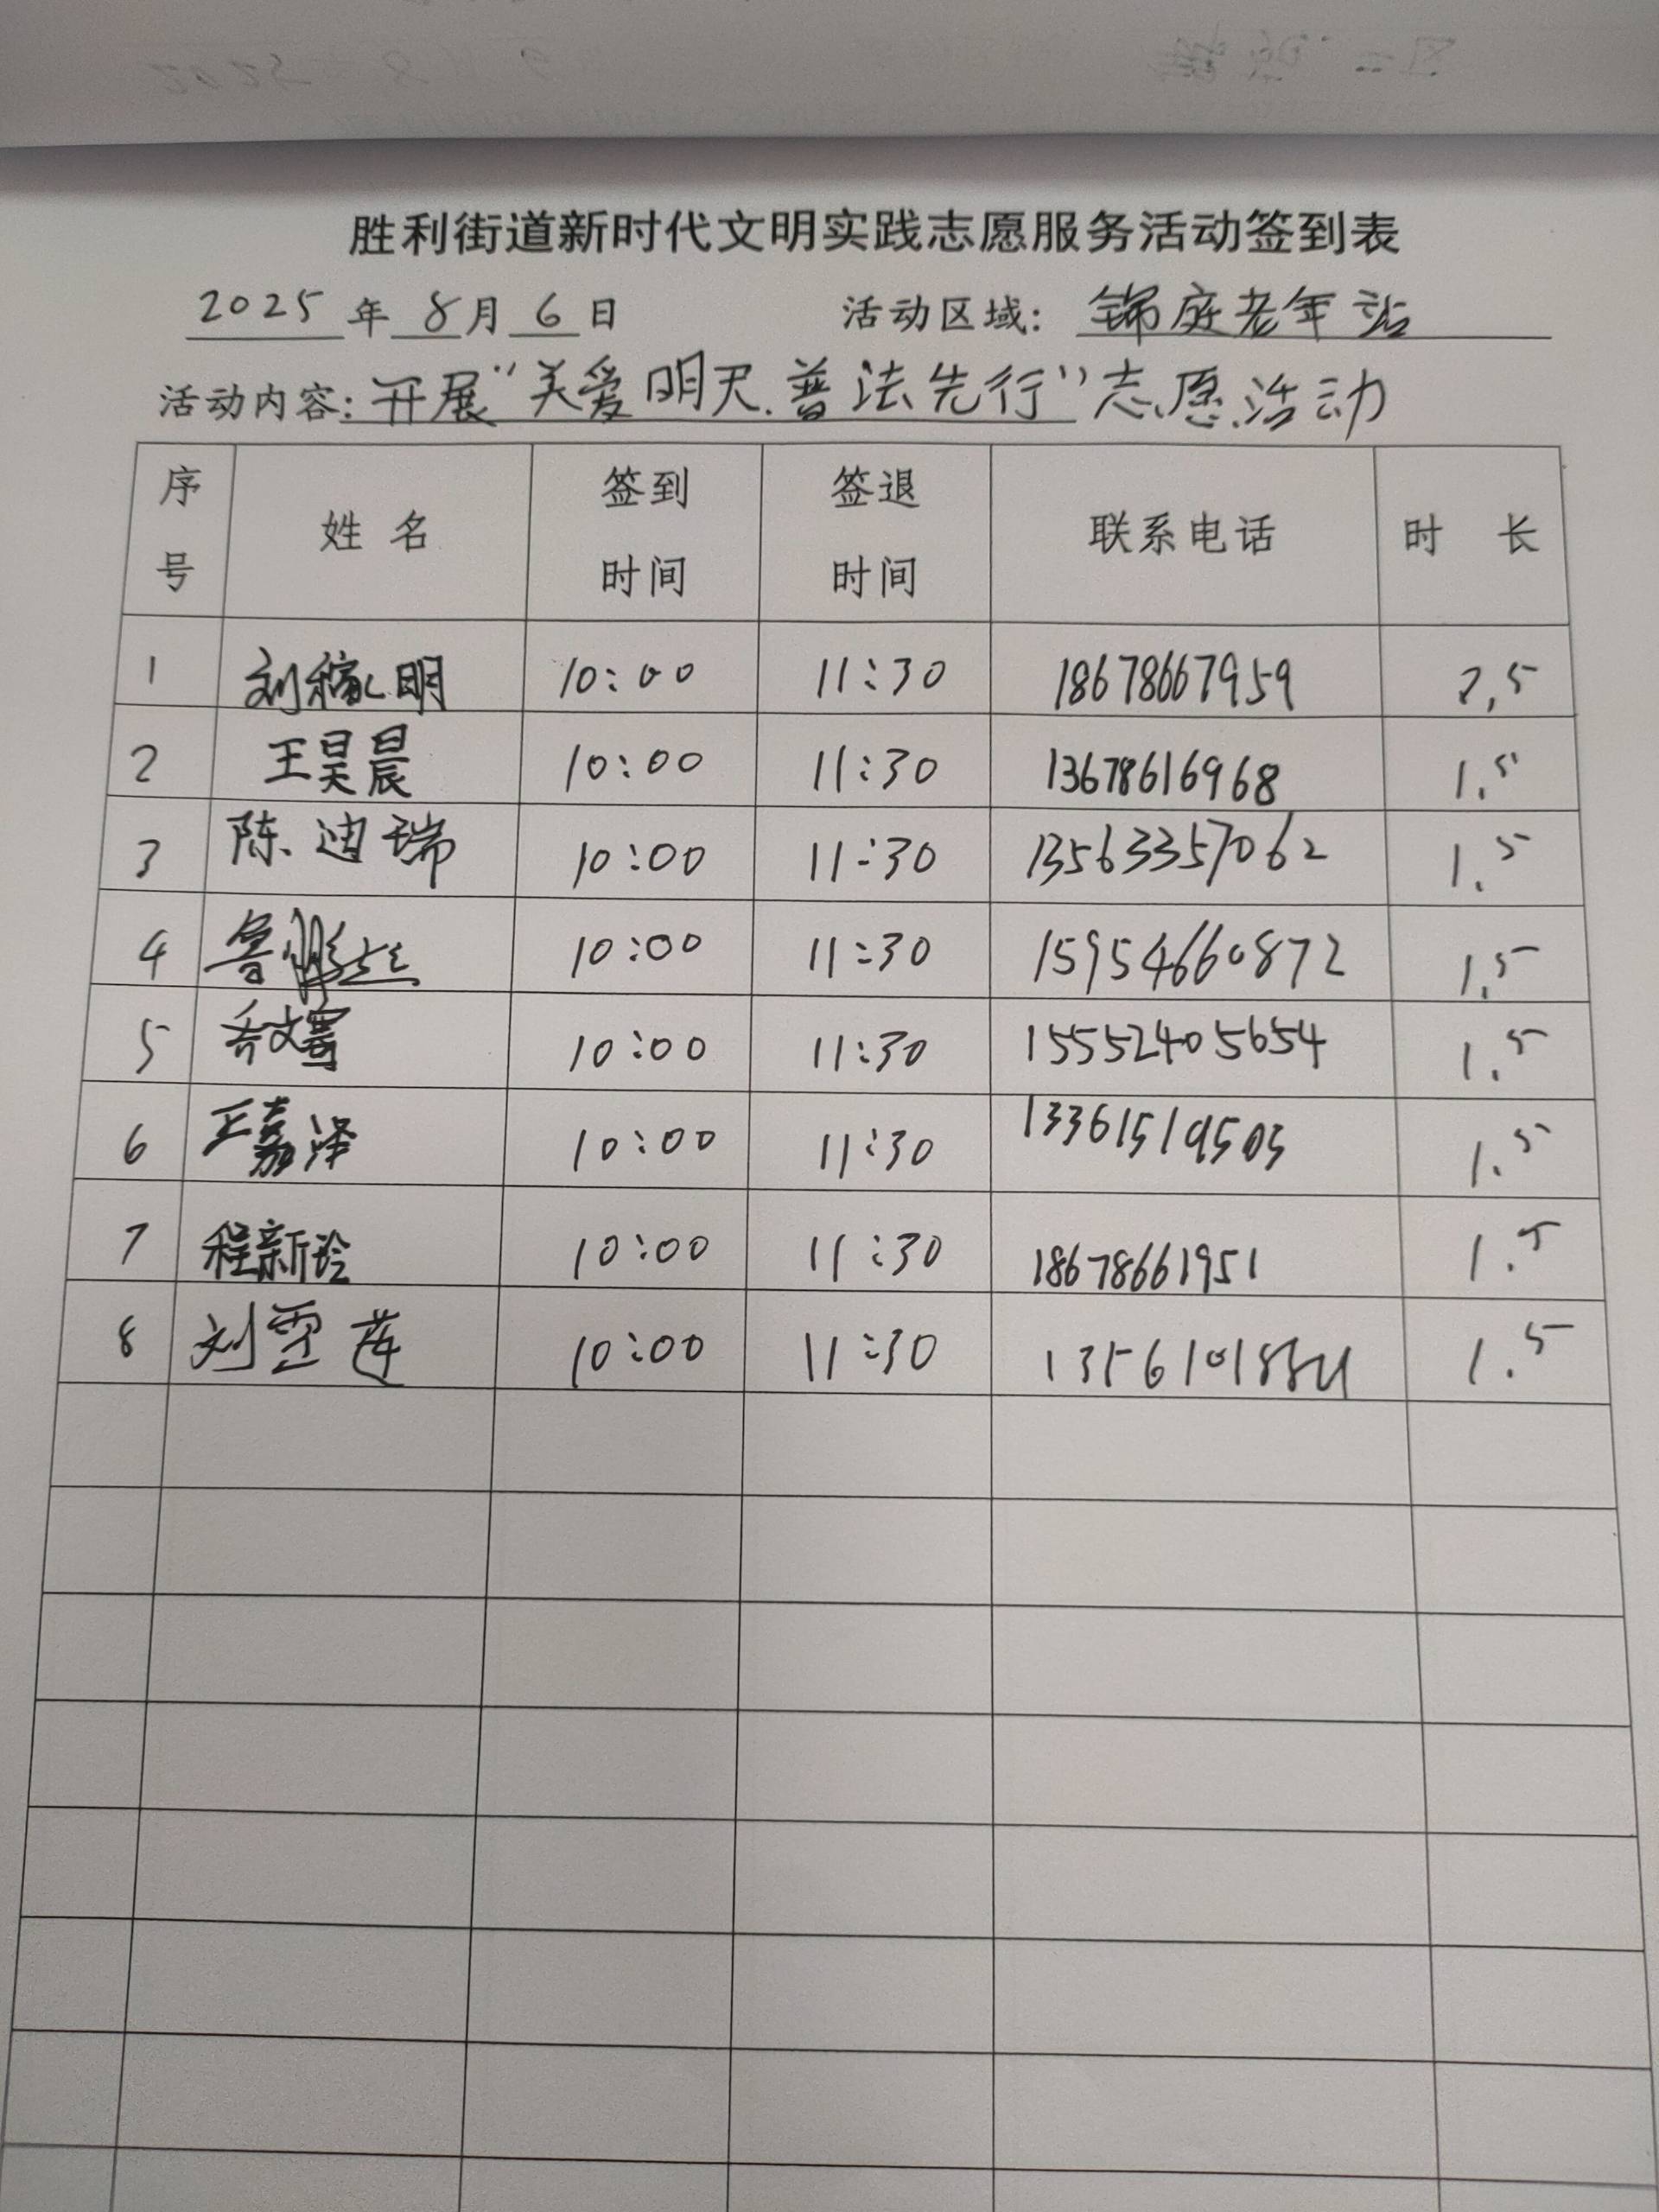 胜利街道新时代文明实践志愿服务活动签到表
2025年8月6日 活动区域：锦庭老年站
活动内容：开展“关爱明天.普法先行”志愿活动
序号 姓名 签到时间 签退时间 联系电话 时长
1 刘 明 10:00 11:30 18678667959 2,5
2 王昊晨 10:00 11:30 13678616968 1.5
3 陈迪瑞 10:00 11:30 13563357062 1.5
4 鲁 10:00 11:30 15954660872 1.5
5 乔文骞 10:00 11:30 15552405654 1.5
6 王嘉泽 10:00 11:30 13361519505 1.5
7 程新玲 10:00 11:30 18678661951 1.5
8 刘雪莲 10:00 11:30 1.5